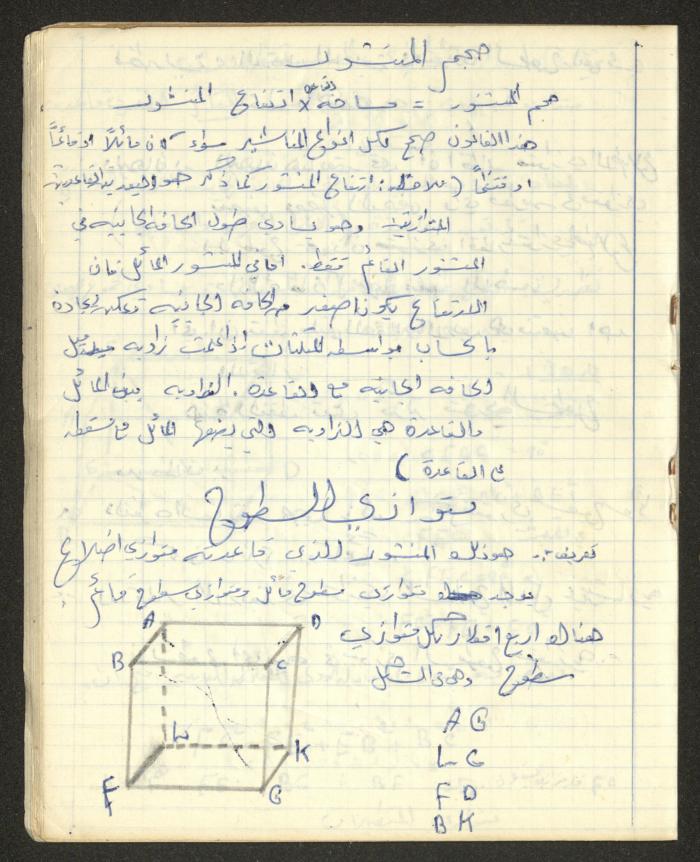 حجم المنشور
حجم المنشور = مساحة قاعدته × ارتفاع المنشور
هذا القانون صحيح لكل انواع المناشير سواء كان مائلاً او قائماً
او منتظماً (ملاحظة: ارتفاع المنشور كما ذكر هو البعد بين القاعدتين
المتوازيتين وهو يساوي طول الحافه الجانبيه في
المنشور القائم فقط. اما في المنشور المائل فان
الارتفاع يكون اصغر من الحافه الجانبيه ويمكن ايجاده
بالحساب بواسطه المثلثات اذا علمت زاويه ميل
الحافه الجانبيه مع القاعدة. الزاويه بين المائل
والقاعدة هي الزاويه التي يصنعها المائل مع مسقطه
على القاعدة)
متوازي السطوح
تعريف:- هو ذلك المنشور الذي قاعدته متوازي اضلاع
يوجد متوازي سطوح مائل ومتوازي سطوح قائم
هنالك اربع اقطار لكل متوازي
سطوح وهي في الشكل
A G
L C
F D
B K
A
D
B
C
L
K
F
G